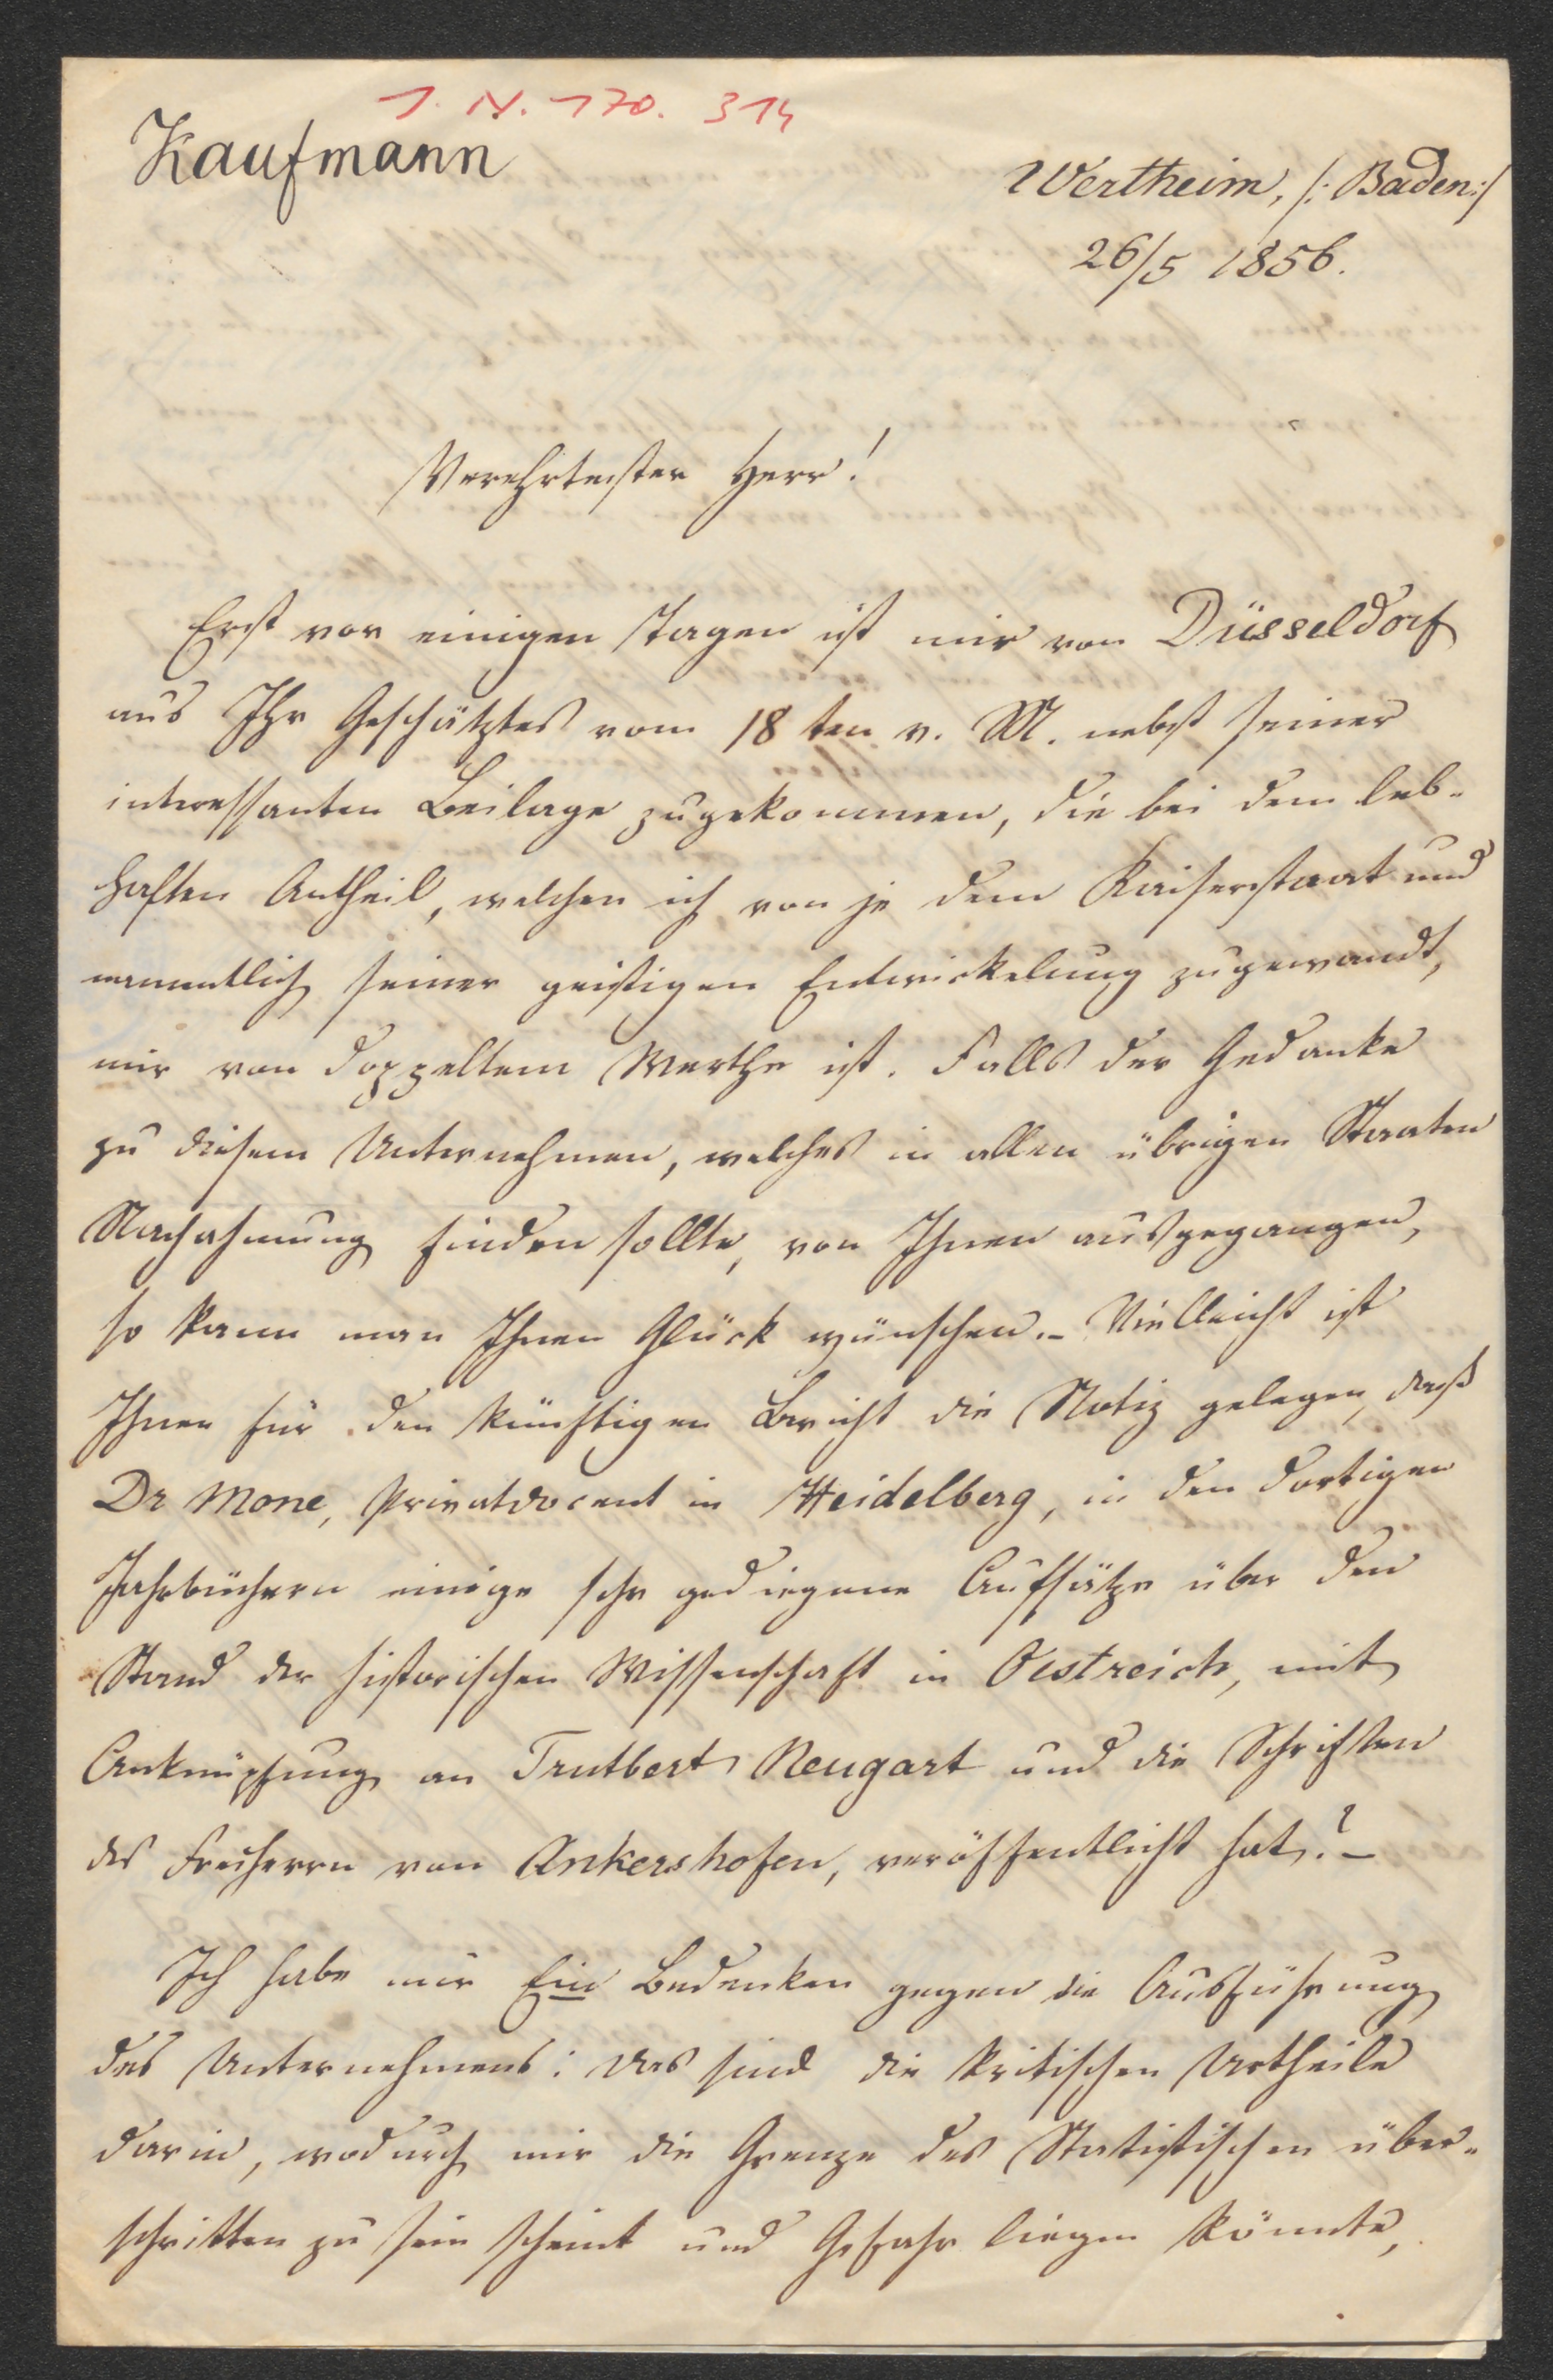 I. N. 170. 314
Kaufmann
Wertheim, /: Baden :/
26/5 1856.
Verehrtester Herr!
Erst vor einigen Tagen ist mir von Düsseldorf
aus Ihr Geschätztes vom 18ten v. M. nebst seiner
interessanten Beilage zugekommen, die bei dem leb-
haften Antheil, welchen ich von je dem Kaiserstaat und
namentlich seiner geistigen Entwickelung zugewandt,
mir von doppeltem Werthe ist. Falls der Gedanke
zu diesem Unternehmen, welches in allen übrigen Staaten
Nachahmung finden sollte, von Ihnen ausgegangen,
so kann man Ihnen Glück wünschen. – Vielleicht ist
Ihnen für den künftigen Bericht die Notiz gelegen, daß
Dr Mone, Privatdocent in Heidelberg, in den dortigen
Jahrbüchern einige sehr gediegene Aufsätze über den
Stand der historischen Wissenschaft in Oestreich, mit
Anknüpfung an Trutbert Neugart und die Schriften
des Freiherrn von Ankershofen, veröffentlicht hat? –
Ich habe nur Ein Bedenken gegen die Ausführung
des Unternehmens: das sind die kritischen Urtheile
darin, wodurch mir die Grenze des Statistischen über-
schritten zu sein scheint und Gefahr liegen könnte,